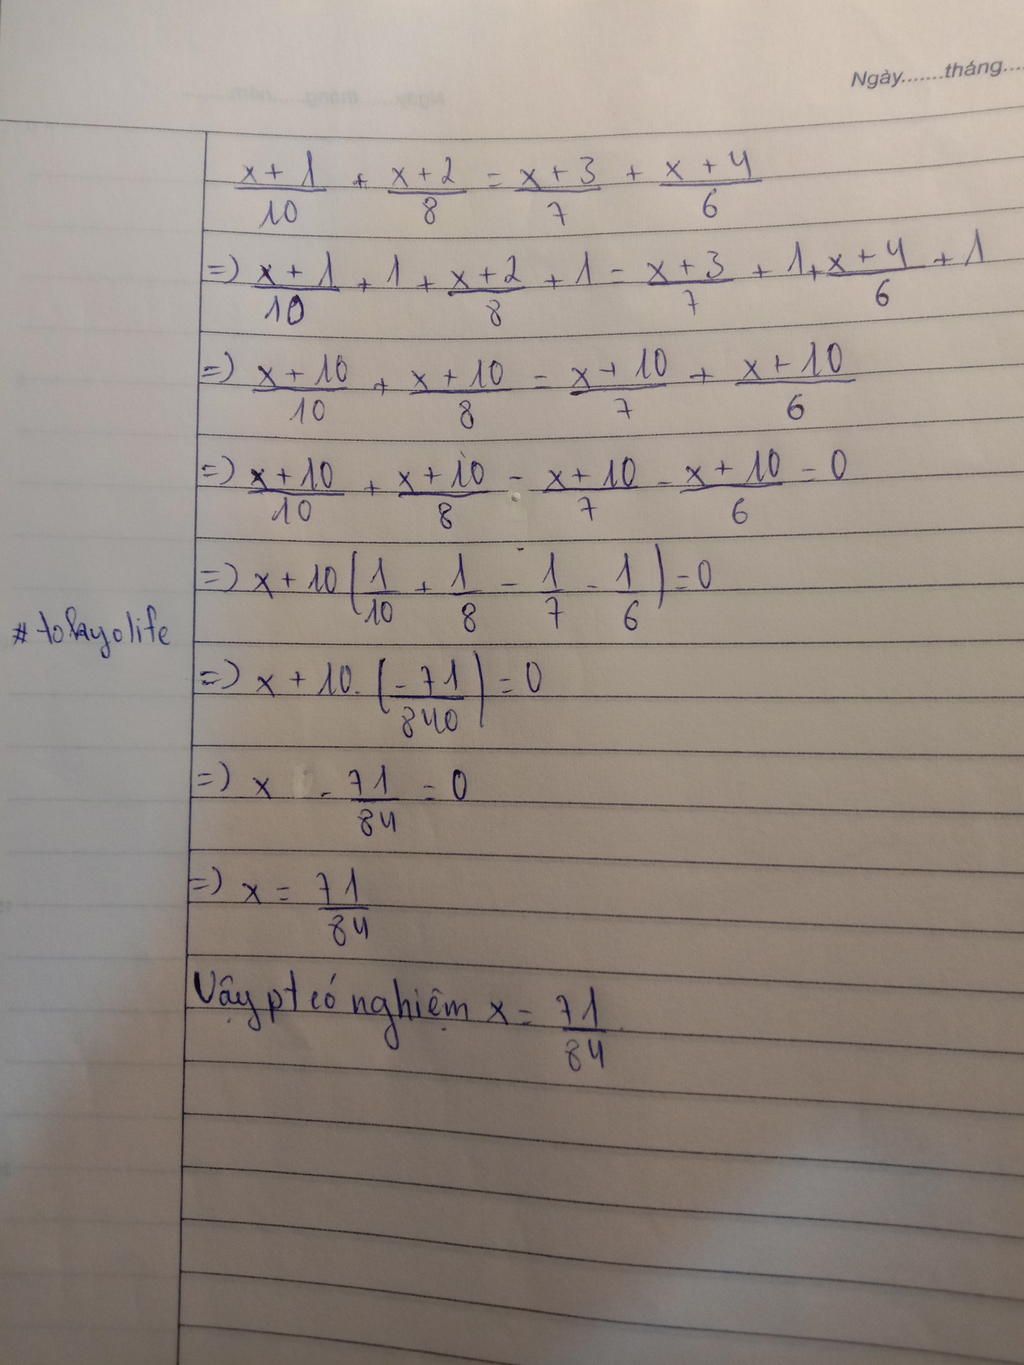 Ngày.......tháng....
x + 1/10 + x + 2/8 = x + 3/7 + x + 4/6
=) x + 1/10 + 1 + x + 2/8 + 1 = x + 3/7 + 1 + x + 4/6 + 1
=) x + 10/10 + x + 10/8 = x + 10/7 + x + 10/6
=) x + 10/10 + x + 10/8 - x + 10/7 - x + 10/6 = 0
=) x + 10 (1/10 + 1/8 - 1/7 - 1/6) = 0
#tokyolife
=) x + 10. (-71/840) = 0
=) x - 71/84 = 0
=) x = 71/84
Vậy pt có nghiệm x = 71/84.